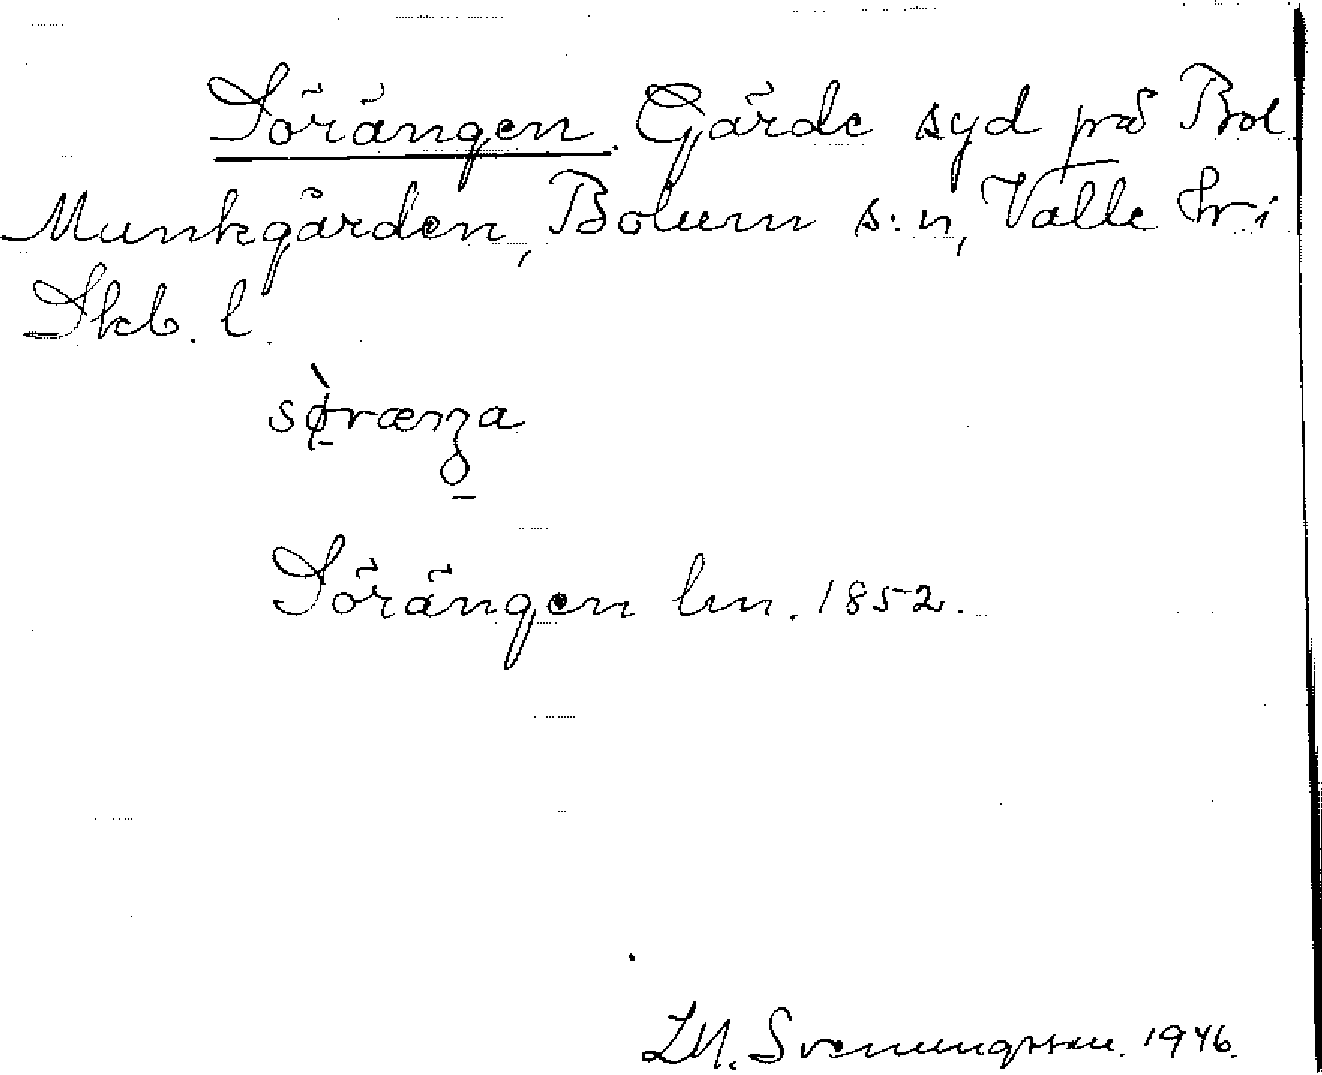 Sörängen. Gärde syd på Bol
Munkgården, Bolum s:n, Valle hr i
Skb. l.
Sörängen lm. 1852.
Svenungsson. 1946.